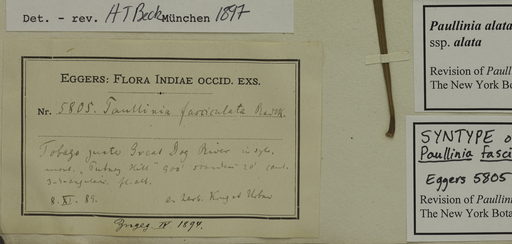 Det. - rev. H T Beck München 1897
EGGERS: FLORA INDIAE OCCID. EXS.
Nr. 5805. Paullinia fasciculata Radlk.
Tobago Great Dog River in sylv.
"Putney Hill" 900'
fl. alb.
8. XI. 89. ex herb. Krug et Urban
Engeg. IV 1894.
Paullinia alata
ssp. alata
Revision of Paull
The New York Bo
SYNTYPE o
Paullinia fasci
Eggers 5805
Revision of Paullin
The New York Bota